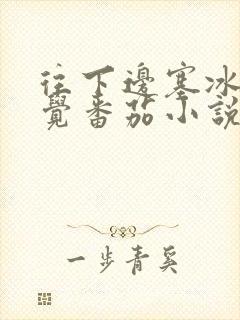 往下邊塞冰
覺番茄小說
一步青奚